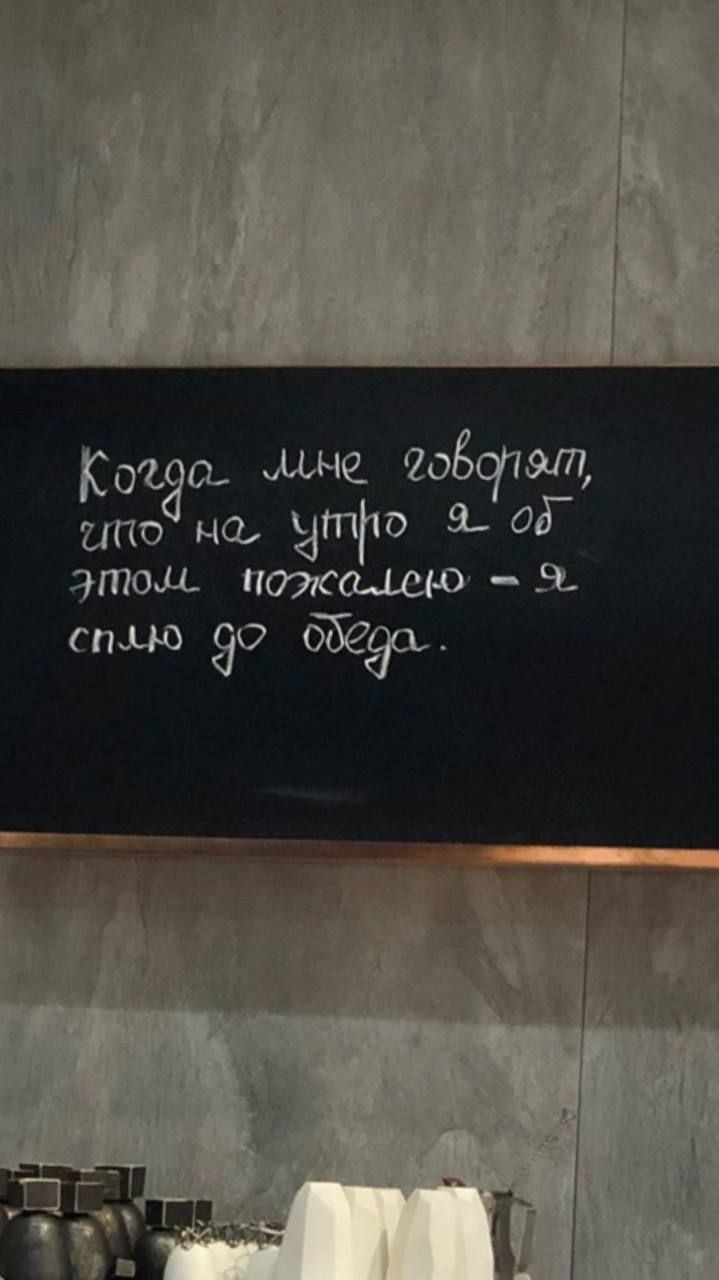 Когда мне говорят,
что на утро я об
этом пожалею - я
сплю до обеда.